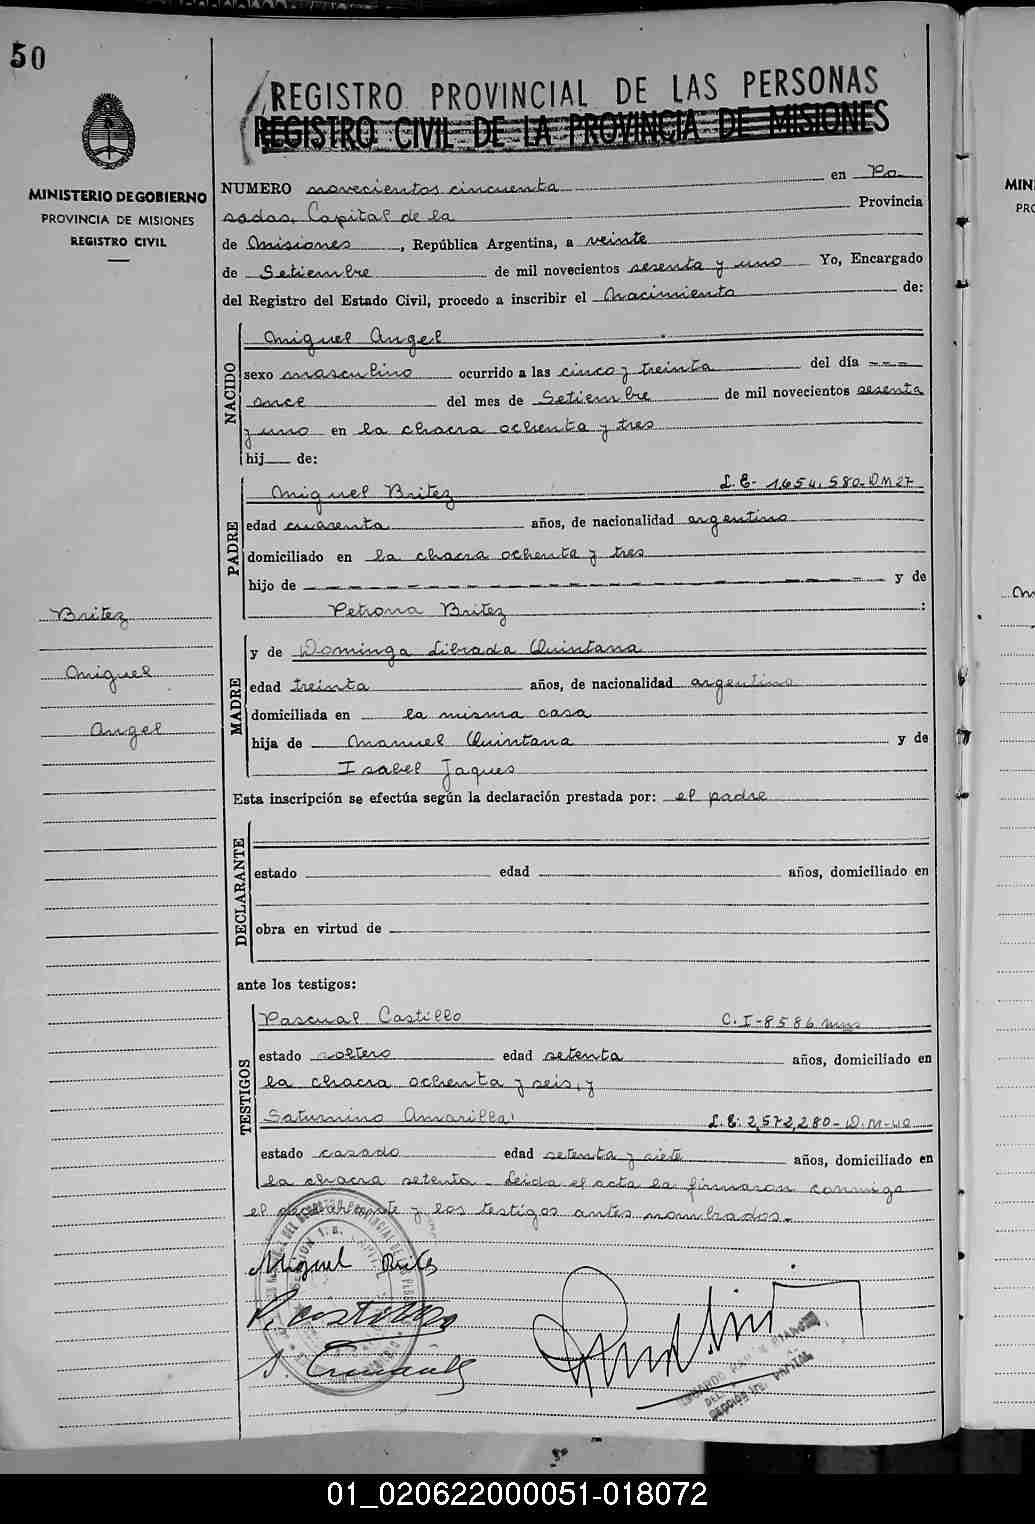 50
MINISTERIO DE GOBIERNO
PROVINCIA DE MISIONES
REGISTRO CIVIL
REGISTRO PROVINCIAL DE LAS PERSONAS
REGISTRO CIVIL DE LA PROVINCIA DE MISIONES
NUMERO novecientos cincuenta en Po
sadas, Capital de la Provincia
de Misiones, República Argentina, a veinte
de Setiembre de mil novecientos sesenta y uno Yo, Encargado
del Registro del Estado Civil, procedo a inscribir el Nacimiento de:
NACIDO
Miguel Angel
sexo masculino ocurrido a las cinco y treinta del día ---
once del mes de Setiembre de mil novecientos sesenta
y uno en la chacra ochenta y tres
hij de:
PADRE
Miguel Britez L.E- 1.654.580-D M 27
edad cuarenta años, de nacionalidad argentino
domiciliado en la chacra ochenta y tres
hijo de y de
Petrona Britez :
Britez
Miguel
Angel
MADRE
y de Dominga Librada Quintana
edad treinta años, de nacionalidad argentina
domiciliada en la misma casa
hija de Manuel Quintana y de
Isabel Jaques
Esta inscripción se efectúa según la declaración prestada por: el padre
DECLARANTE
estado edad años, domiciliado en
obra en virtud de
ante los testigos:
TESTIGOS
Pascual Castillo C.I-8586
estado soltero edad setenta años, domiciliado en
la chacra ochenta y seis, y
Saturnino Amarilla L.E: 2,572,280-D.M-40
estado casado edad setenta y siete años, domiciliado en
la chacra setenta - Leida el acta la firmaron conmigo
el declarante y los testigos antes nombrados.-
Miguel Brites
P. Castillo
SECCION
01_020622000051-018072